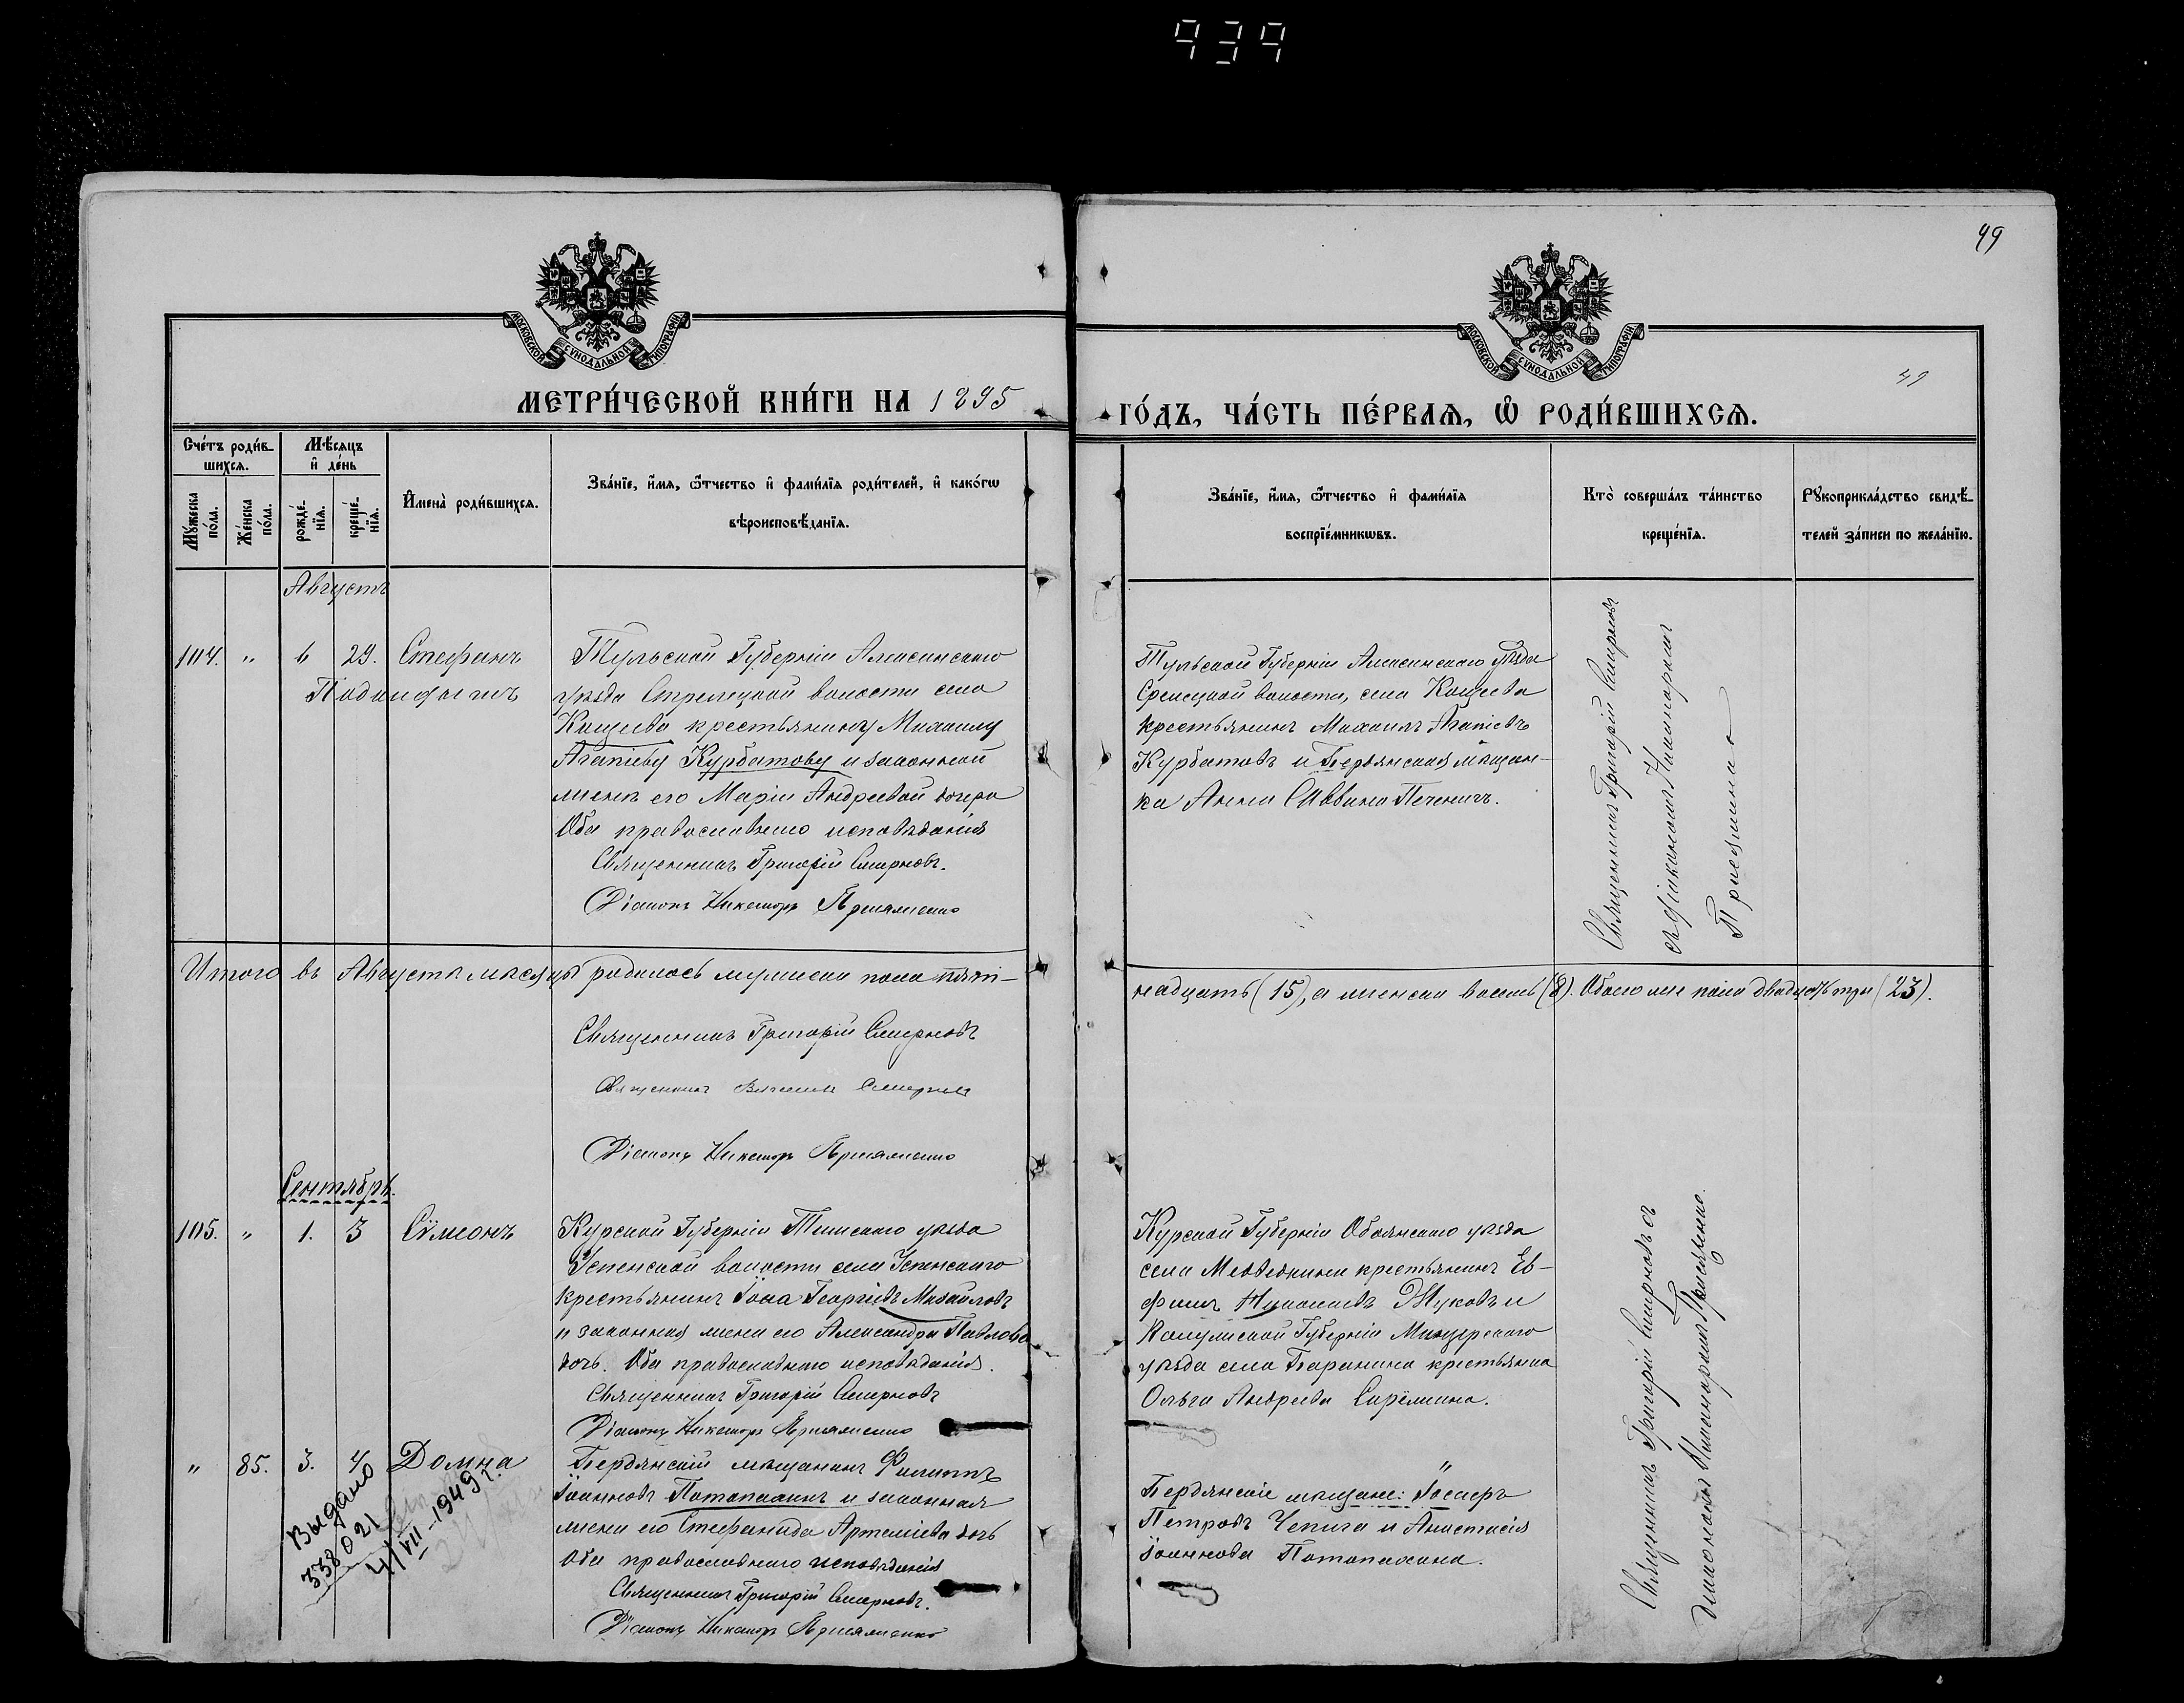 939
49
МОСКОВСКОЙ СУНОДАЛЬНОЙ ТИПОГРАФІИ
МОСКОВСКОЙ СУНОДАЛЬНОЙ ТИПОГРАФІИ
МЕТРИ́ЧЕСКОЙ КНИ́ГИ НА 1895
ГО́ДЪ, ЧА́СТЬ ПЕ́РВАѦ, Ѡ РОДИ́ВШИХСѦ.
Сче́тъ роди́в-
шихсѧ.
Мꙋжеска по́ла.
Же́нска по́ла.
Мѣ́сяцъ
и҆ де́нь
рожде́-
нїѧ.
креще́-
нїѧ.
И҆мена̀ роди́вшихсѧ.
Зва́нїе, и҆́мѧ, ѻ҆́тчество и҆ фами́лїѧ роди́телей, и҆ како́гѡ
вѣроисповѣ́данїѧ.
Зва́нїе, и҆́мѧ, ѻ҆́тчество и҆ фами́лїѧ
воспрїе́мникѡвъ.
Кто̀ соверша́лъ та́инство
креще́нїѧ.
Рꙋкоприкла́дство свидѣ́-
телей за́писи по жела́нїю.
Августъ
104. " 6 29. Стефанъ
Тульской Губерніи Алексинскаго
уѣзда Стрелецкой волости села
Кащеева крестьянину Михаилу
Агапіеву Курбатову и законной
женѣ его Маріи Андреевой дочери
Оба православнаго исповѣданія
Священникъ Григорій Смирновъ.
Діаконъ Никаноръ Присяженко
Тульской Губерніи Алексинскаго уѣзда
волости, села Кащеева
крестьянинъ Михаилъ Агапіевъ
Курбатовъ и Бердянская мѣщан-
ка Анна Саввина Печеничъ.
Священникъ Григорій Смирновъ
съ діакономъ Никаноромъ
Присяженко
Итого въ Августѣ мѣсяцѣ родилось мужеска пола пят-
надцать (15), а женска восемь (8). Обоего же пола двадцать три (23).
Священникъ Григорій Смирновъ
Священникъ Смирновъ
Діаконъ Никаноръ Присяженко
Сентябрь.
105. " 1. 3 Сѵмеонъ
Курской Губерніи Тимскаго уѣзда
Успенской волости села Успенскаго
крестьянинъ Іона Георгіевъ Михайловъ
и законная жена его Александра Павлова
дочь. Оба православнаго исповѣданія.
Священникъ Григорій Смирновъ
Діаконъ Никаноръ Присяженко
Курской Губерніи Обоянскаго уѣзда
села Медведкина крестьянинъ Ев-
фимъ Жуковъ и
Калужской Губерніи
уѣзда села Баранина крестьянка
Ольга Андреева
Священникъ Григорій Смирновъ съ
діакономъ Никаноромъ Присяженко.
" 85. 3. 4 Домна
Бердянскій мѣщанинъ Филиппъ
Іоанновъ Потапахинъ и законная
жена его Стефанида Артеміева дочь
Оба православнаго исповѣданія
Священникъ Григорій Смирновъ.
Діаконъ Никаноръ Присяженко
Бердянскіе мѣщане:
Петровъ Чепига и Анастасія
Іоаннова Потапахина.
Выдано
338021
4/VII-1949 г.